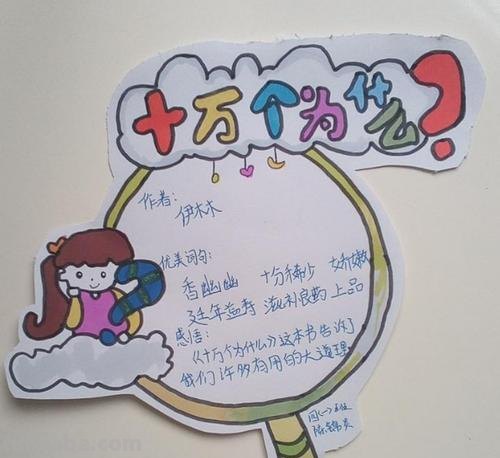 十万个为什么?
作者:
伊林木
优美词句:
香幽幽 十分稀少 娇嫩
延年益寿 滋补良药 上品
感悟:
《十万个为什么》这本书告诉了
我们许多有用的大道理
四(一)班
陈